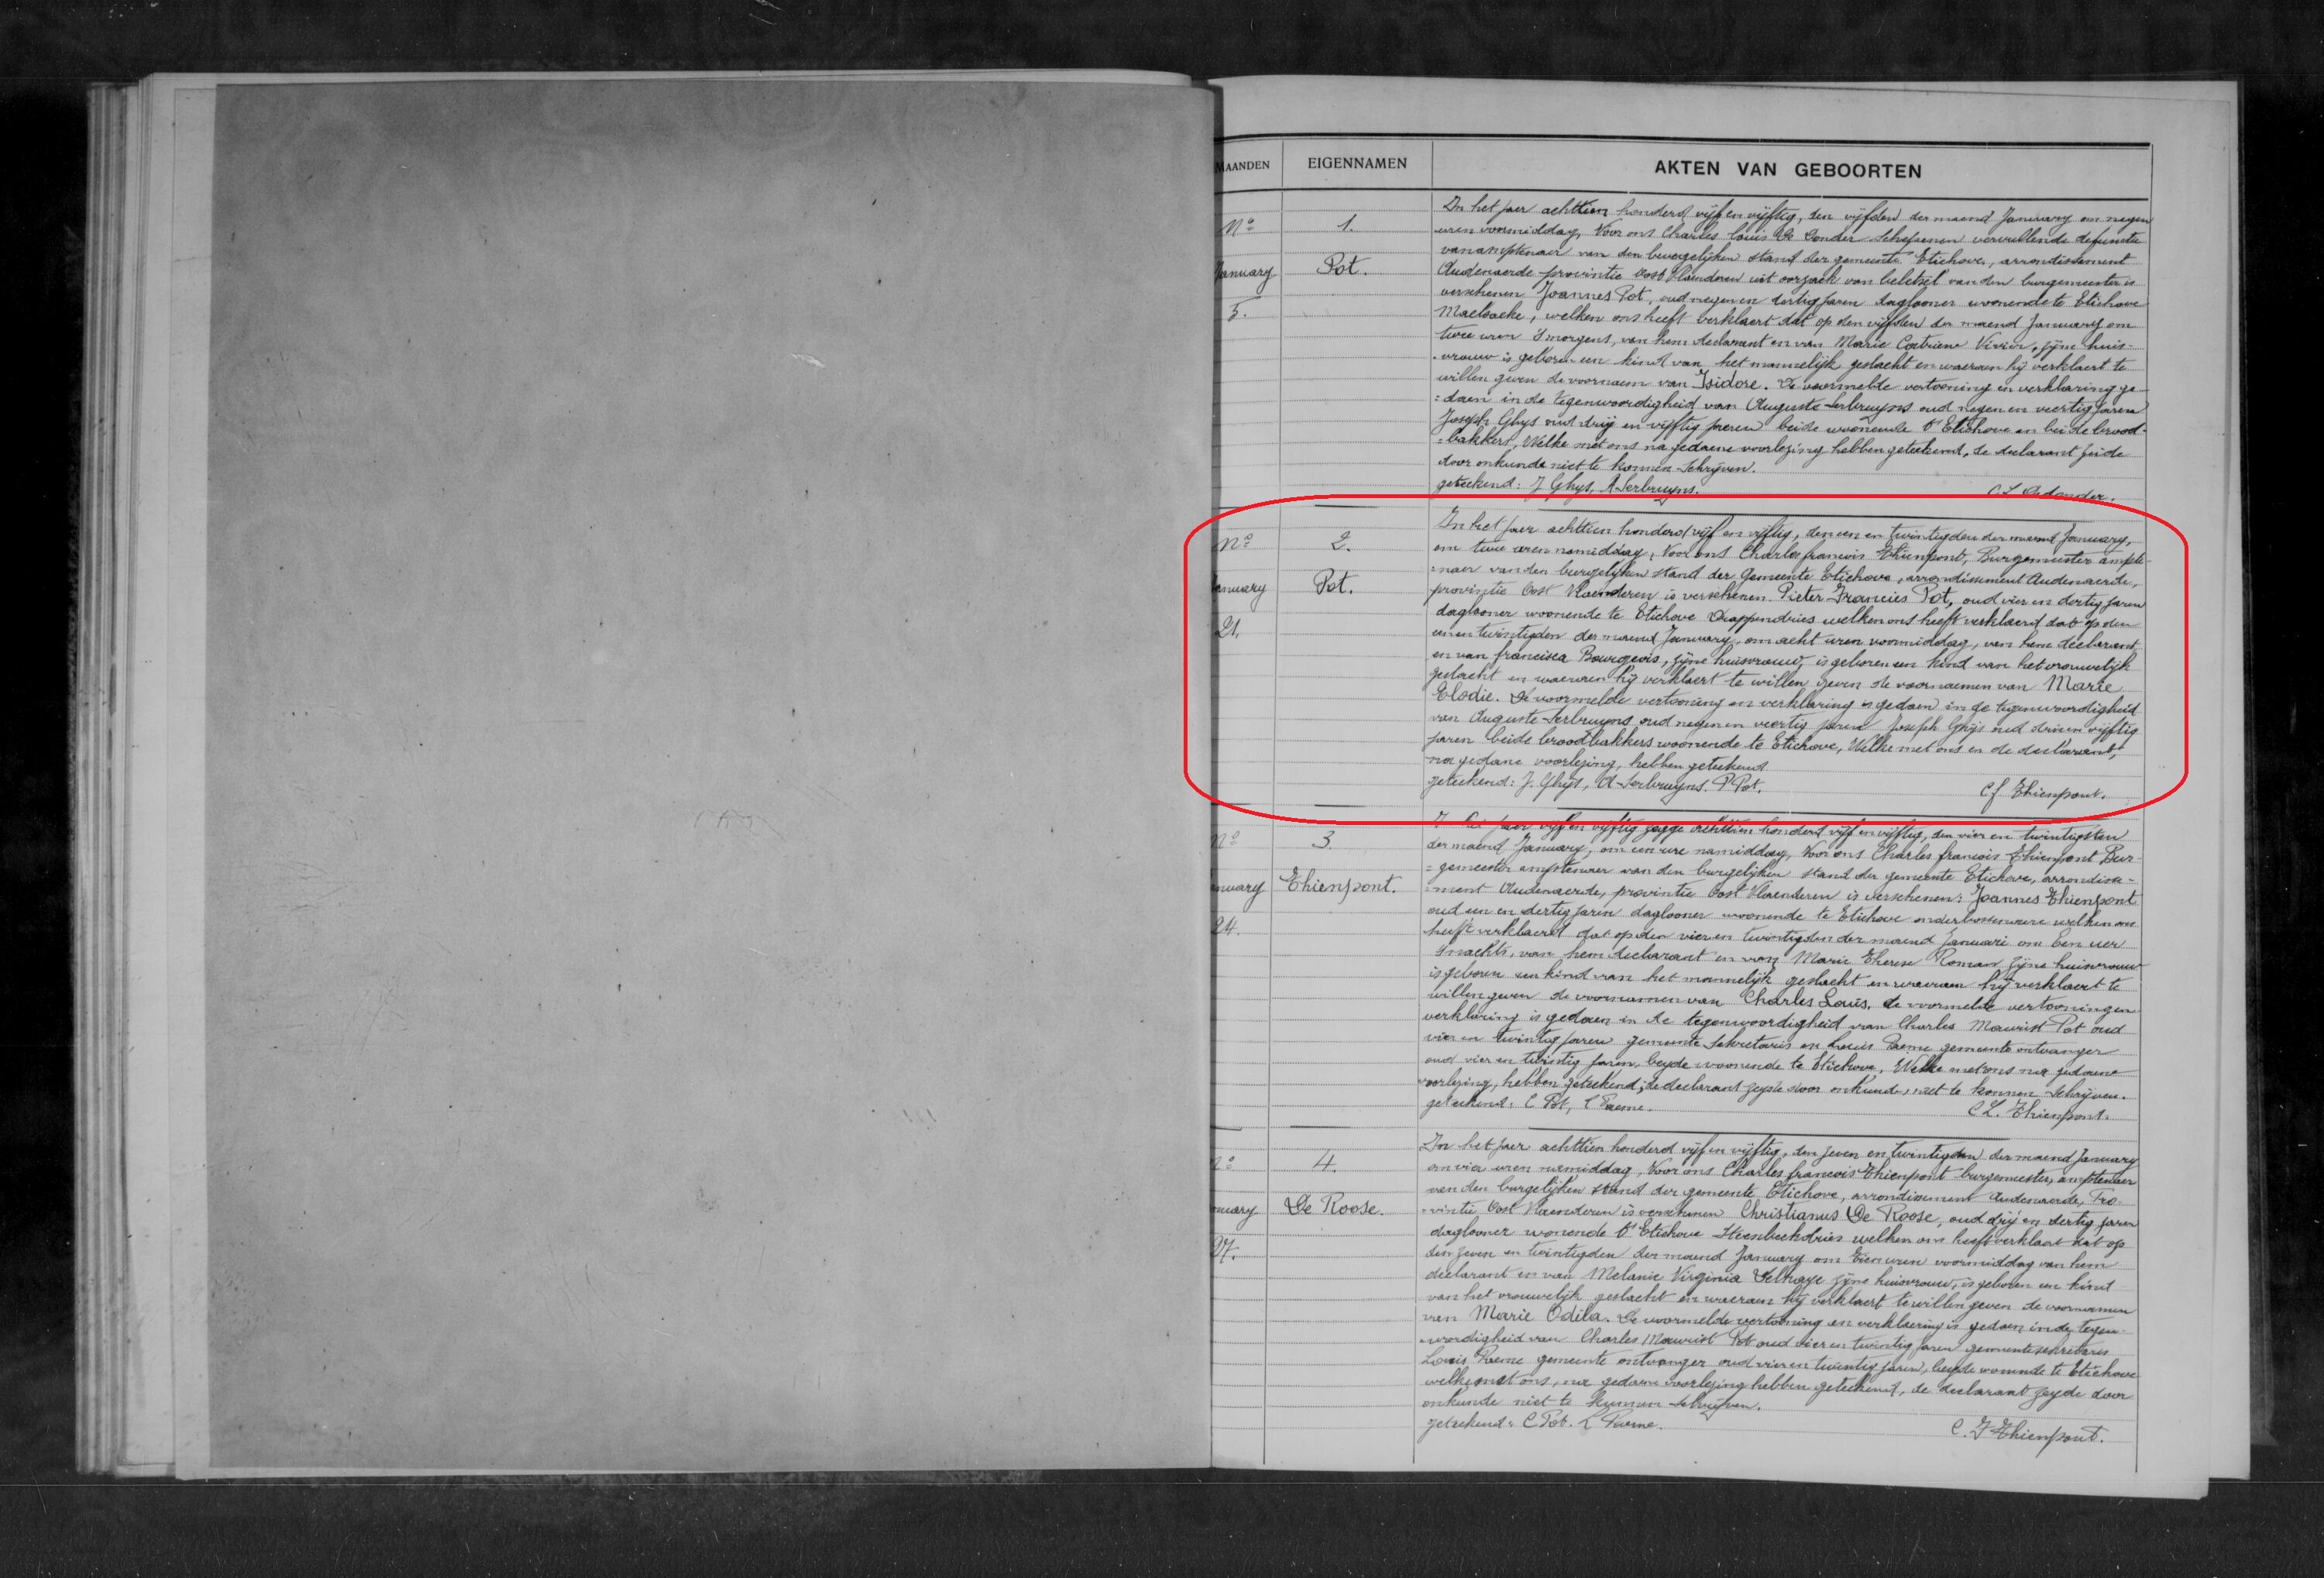 MAANDEN EIGENNAMEN AKTEN VAN GEBOORTEN
No 1.
January Pot.
5.
In het jaer achttien honderd vijf en vijftig, den vijfden der maend January om negen
uren voormiddag, Voor ons Charles Louis De Donder Schepenen vervullende de functie
van amptenaer van den burgelijken stand der gemeente Etichove, arrondissement
Audenaerde provintie Oost Vlaenderen uit oorzaek van beletsel van den burgemeester is
verschenen Joannes Pot, oud negen en dertig jaren daglooner woonende te Etichove
Maelzaeke, welken ons heeft verklaert dat op den vijfden der maend January om
twee uren 's morgens, van hem declarant en van Marie Catriene Vivier, zijne huis-
vrouw is geboren een kind van het mannelijk geslacht en waeraen hij verklaert te
willen geven de voornaem van Isidore. De voormelde vertooning en verklaring ge-
=daen in de tegenwoordigheid van Auguste Serbruyns oud negen en veertig jaren
Joseph Ghys oud drij en vijftig jaeren beide woonende t' Etichove en beide brood-
=bakkers, Welke met ons na gedaene voorlezing hebben geteekend, de declarant zeide
door onkunde niet te konnen Schrijven.
geteekend: J Ghys, A Serbruyns. C L Dedonder.
No 2.
January Pot.
21.
In het jaer achttien honderd vijf en vijftig, den een en twintigden der maend January,
om twee uren namiddag, Voor ons Charles francois Thienpont, Burgemeester ampte-
=naer van den burgelijken stand der Gemeente Etichove, arrondissement Audenaerde,
provintie Oost Vlaenderen is verschenen Pieter Francies Pot, oud vier en dertig jaren
daglooner woonende te Etichove Drappendries welken ons heeft verklaerd dat op den
een en twintigden der maend January, om acht uren voormiddag, van hem declarant
en van francisca Bourgeois, zijne huisvrouw, is geboren een kind van het vrouwelijk
geslacht en waeraen hij verklaert te willen geven de voornaemen van Marie
Elodie. De voormelde vertooning en verklaring is gedaen in de tegenwoordigheid
van Auguste Serbruyns oud negen en veertig jaren Joseph Ghijs oud drie en vijftig
jaren beide broodbakkers woonende te Etichove, Welke met ons en de declarant,
na gedane voorlezing, hebben geteekend
geteekend: J. Ghijs, A Serbruyns. P Pot. C f Thienpont.
No 3.
January Thienpont.
24.
jaer vijf en vijftig zegge achttien honderd vijf en vijftig, den vier en twintigsten
der maend January, om een ure namiddag, Voor ons Charles francois Thienpont Bur-
=gemeester amptenaer van den burgelijken stand der gemeente Etichove, arrondisse-
=ment Audenaerde, provintie Oost Vlaenderen is verschenen: Joannes Thienpont
oud een en dertig jaren daglooner woonende te Etichove welken ons
heeft verklaerd dat op den vier en twintigsten der maend Januari om Een uer
snachts, van hem declarant en van Marie Therese Roman zijne huisvrouw
is geboren een kind van het mannelijk geslacht en waeraen hij verklaert te
willen geven de voornamen van Charles Louis. de voormelde vertooning en
verklaring is gedaen in de tegenwoordigheid van Charles Maurist Pot oud
vier en twintig jaren gemeente Sekretaris en Louis Paeme gemeente ontvanger
oud vier en twintig jaren beyde woonende te Etichove, Welke met ons na gedaene
voorlezing, hebben geteekend; de declarant zeyde door onkunde niet te konnen Schrijven.
geteekend: C Pot, L Paeme. C L. Thienpont.
No 4.
January De Roose.
27.
In het jaer achttien honderd vijf en vijftig, den zeven en twintigden der maend January
om vier uren namiddag, Voor ons Charles francois Thienpont burgemeester, amptenaer
van den burgelijken stand der gemeente Etichove, arrondissement Audenaerde, Pro-
=vintie Oost Vlaenderen is verschenen Christianus De Roose, oud drij en dertig jaren
daglooner wonende t' Etichove Steenbeekdries welken ons heeft verklaert dat op
den zeven en twintigden der maend January om Tien uren voormiddag van hem
declarant en van Melanie Virginia Delhaye zijne huisvrouw, is geboren een kind
van het vrouwelijk geslacht en waeraen hij verklaert te willen geven de voornamen
van Marie Odila. De voormelde vertooning en verklaering is gedaen in de tegen-
=wordigheid van Charles Maurist Pot oud vier en twintig jaren gemeente sekretaris
Louis Paeme gemeente ontvanger oud vier en twintig jaren, beyde wonende te Etichove
welke met ons, na gedaene voorlezing hebben geteekend, de declarant zeyde door
onkunde niet te kunnen Schrijven.
geteekend: C Pot. L Paeme. C. F Thienpont.